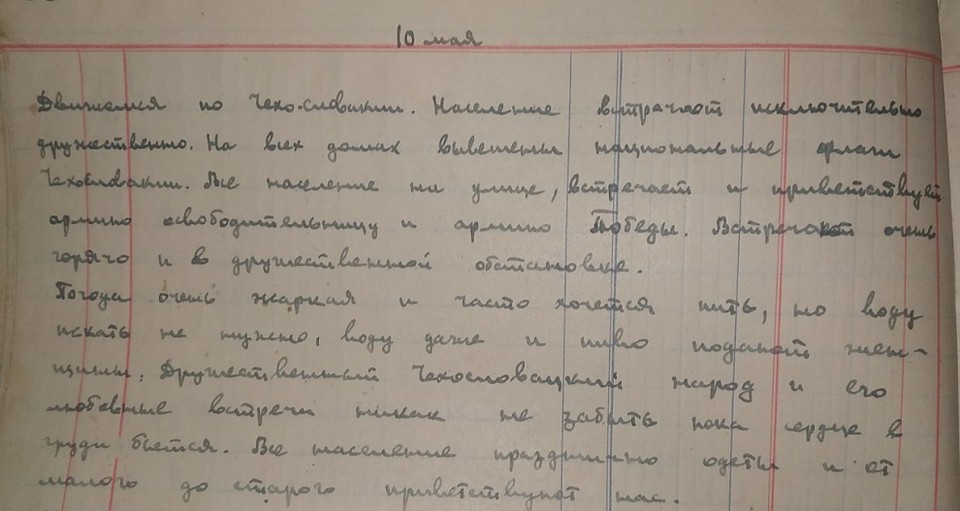 10 мая
Движемся по Чехо-словакии. Население встрачает исключительно
дружественно. На всех домах вывешены национальные флаги
Чехословакии. Все население на улице, встречает и приветствует
армию освободительницу и армию Победы. Встречают очень
горячо и в дружественной обстановке.
Погода очень жаркая и часто хочется пить, но воду
искать не нужно, воду даже и пиво подают жен-
щины. Дружественный Чехословацкий народ и его
любовные встречи никак не забыть пока сердце в
груди бьется. Все население празднично одеты и от
малого до старого приветствуют нас.